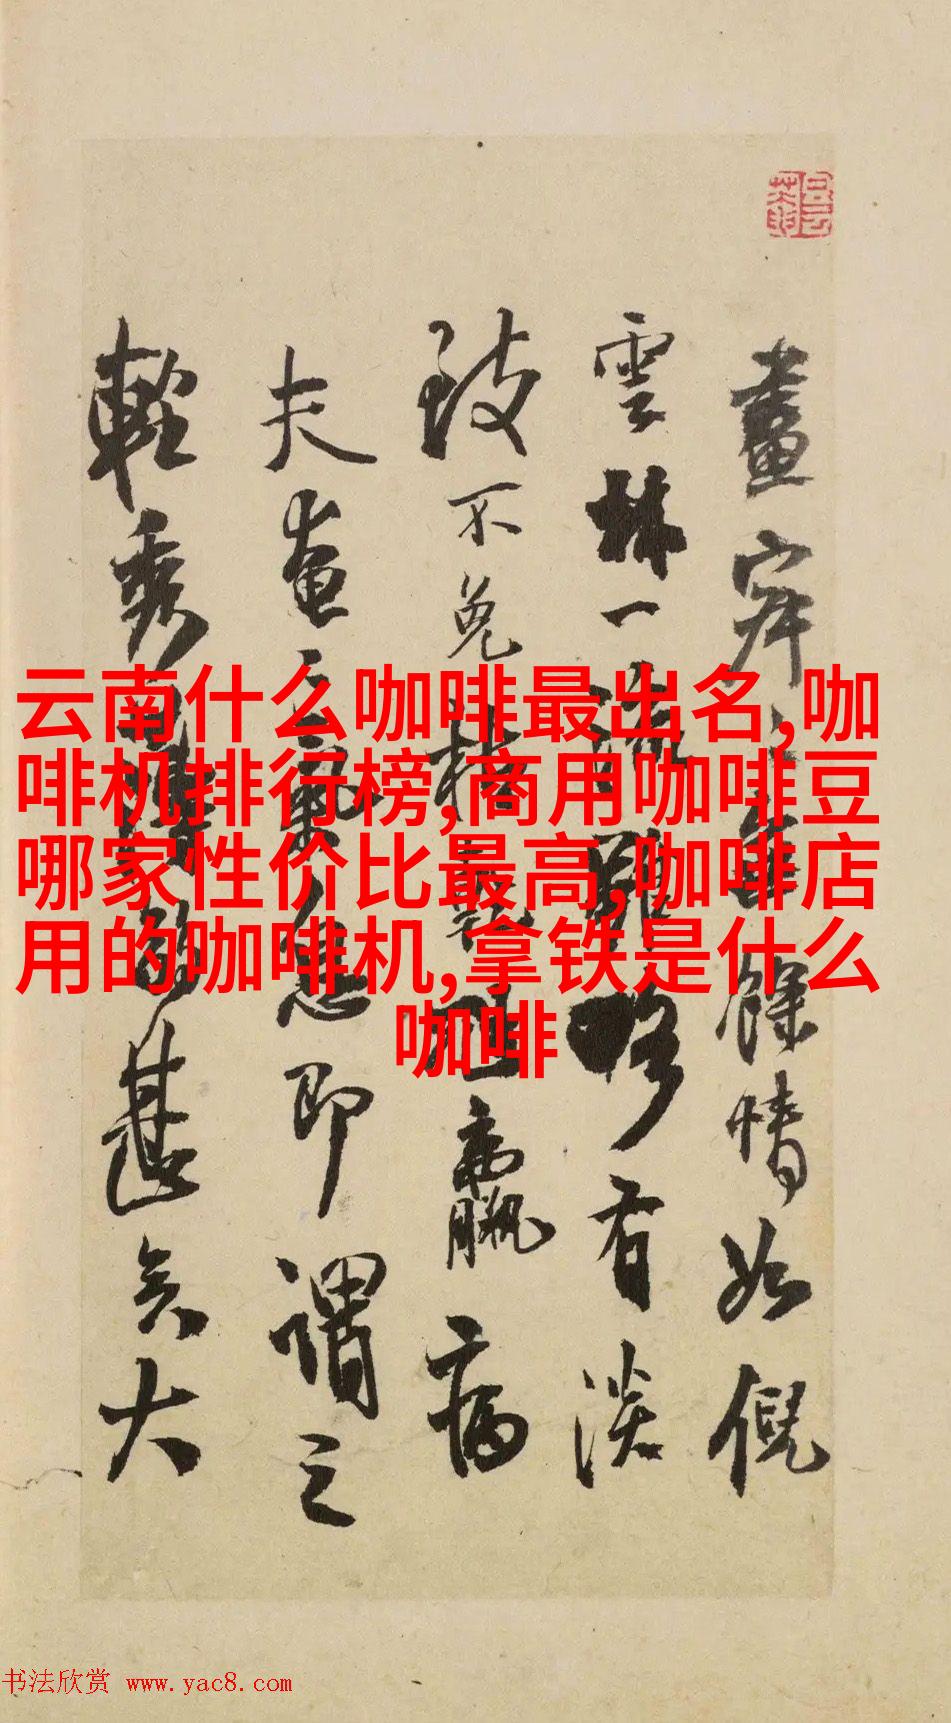 畫寂
餘情如倪
雲林一
有淡
致不免
羸病
夫畫
息即謂之
輕秀
甚矣大
云南什么咖啡最出名,咖
啡机排行榜,商用咖啡豆
哪家性价比最高,咖啡店
用的咖啡机,拿铁是什么
咖啡
书法欣赏 www.yac8.com